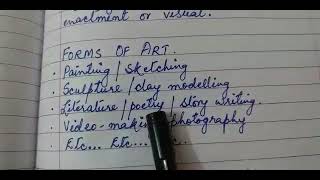 enactment or visual.
FORMS OF ART.
· Painting / Sketching
· Sculpture / clay modelling
· Literature / poetry / story writing.
· Video-making photography
· Etc... Etc...